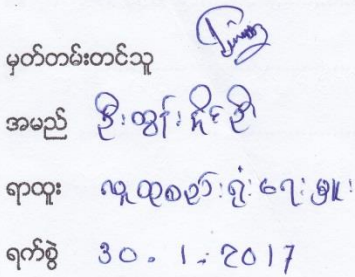 မှတ်တမ်းတင်သူ
အမည် ဦးထွန်းနိုင်ဦး
ရာထူး လူထုစည်းရုံးရေးမှူး
ရက်စွဲ 30.1.2017